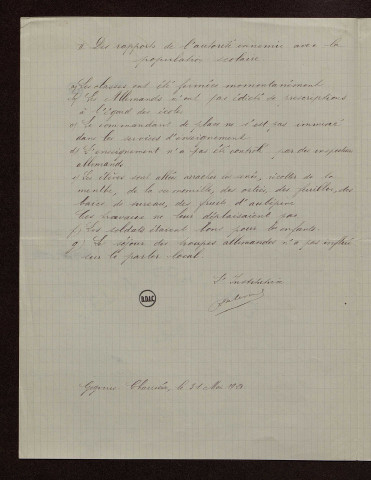 2. Des rapports de l'autorité ennemie avec la
population scolaire
a) Les classes ont été fermées momentanément
b) Les Allemands n'ont pas édicté de prescriptions
à l'égard des écoles
c) Le commandant de place ne s'est pas immiscé
dans les services d'enseignement
d) L'enseignement n'a pas été contrôlé par des inspecteurs
allemands
e) Les élèves sont allés récolte de la
menthe, de la camomille, des orties, des feuilles, des
baies de sureau, des fruits d'aubépine
Ces travaux ne leur déplaisaient pas
f) Les soldats étaient bons pour les enfants.
g) Le séjour des troupes allemandes n'a pas influé
sur le parler local.
L'Institutrice
BDIC
le 21 Mai